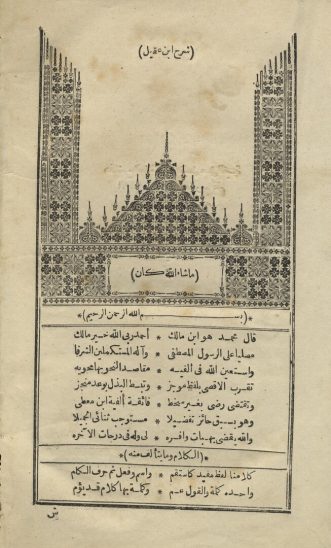 (شرح ابن عقيل)
(ماشاء الله كان)
*(بســـــم الله الرحمن الرحيم)*
قال محمد هو ابن مالك * أحمد ربي الله خير مالك
مصليا على الرسول المصطفى * وآله المستكملين الشرفا
وأستعين الله في ألفيه * مقاصد النحو بها محويه
تقرب الاقصى بلفظ موجز * وتبسط البذل بوعد منجز
وتقتضي رضى بغير سخط * فائقة ألفية ابن معطي
وهو بسبق حائز تفضيلا * مستوجب ثنائي الجميلا
والله يقضي بهبات وافره * لي وله في درجات الآخره
*(الكلام وما يتألف منه)*
كلامنا لفظ مفيد كاستقم * واسم وفعل ثم حرف الكلم
واحده كلمة والقول عم * وكلمة بها كلام قد يؤم